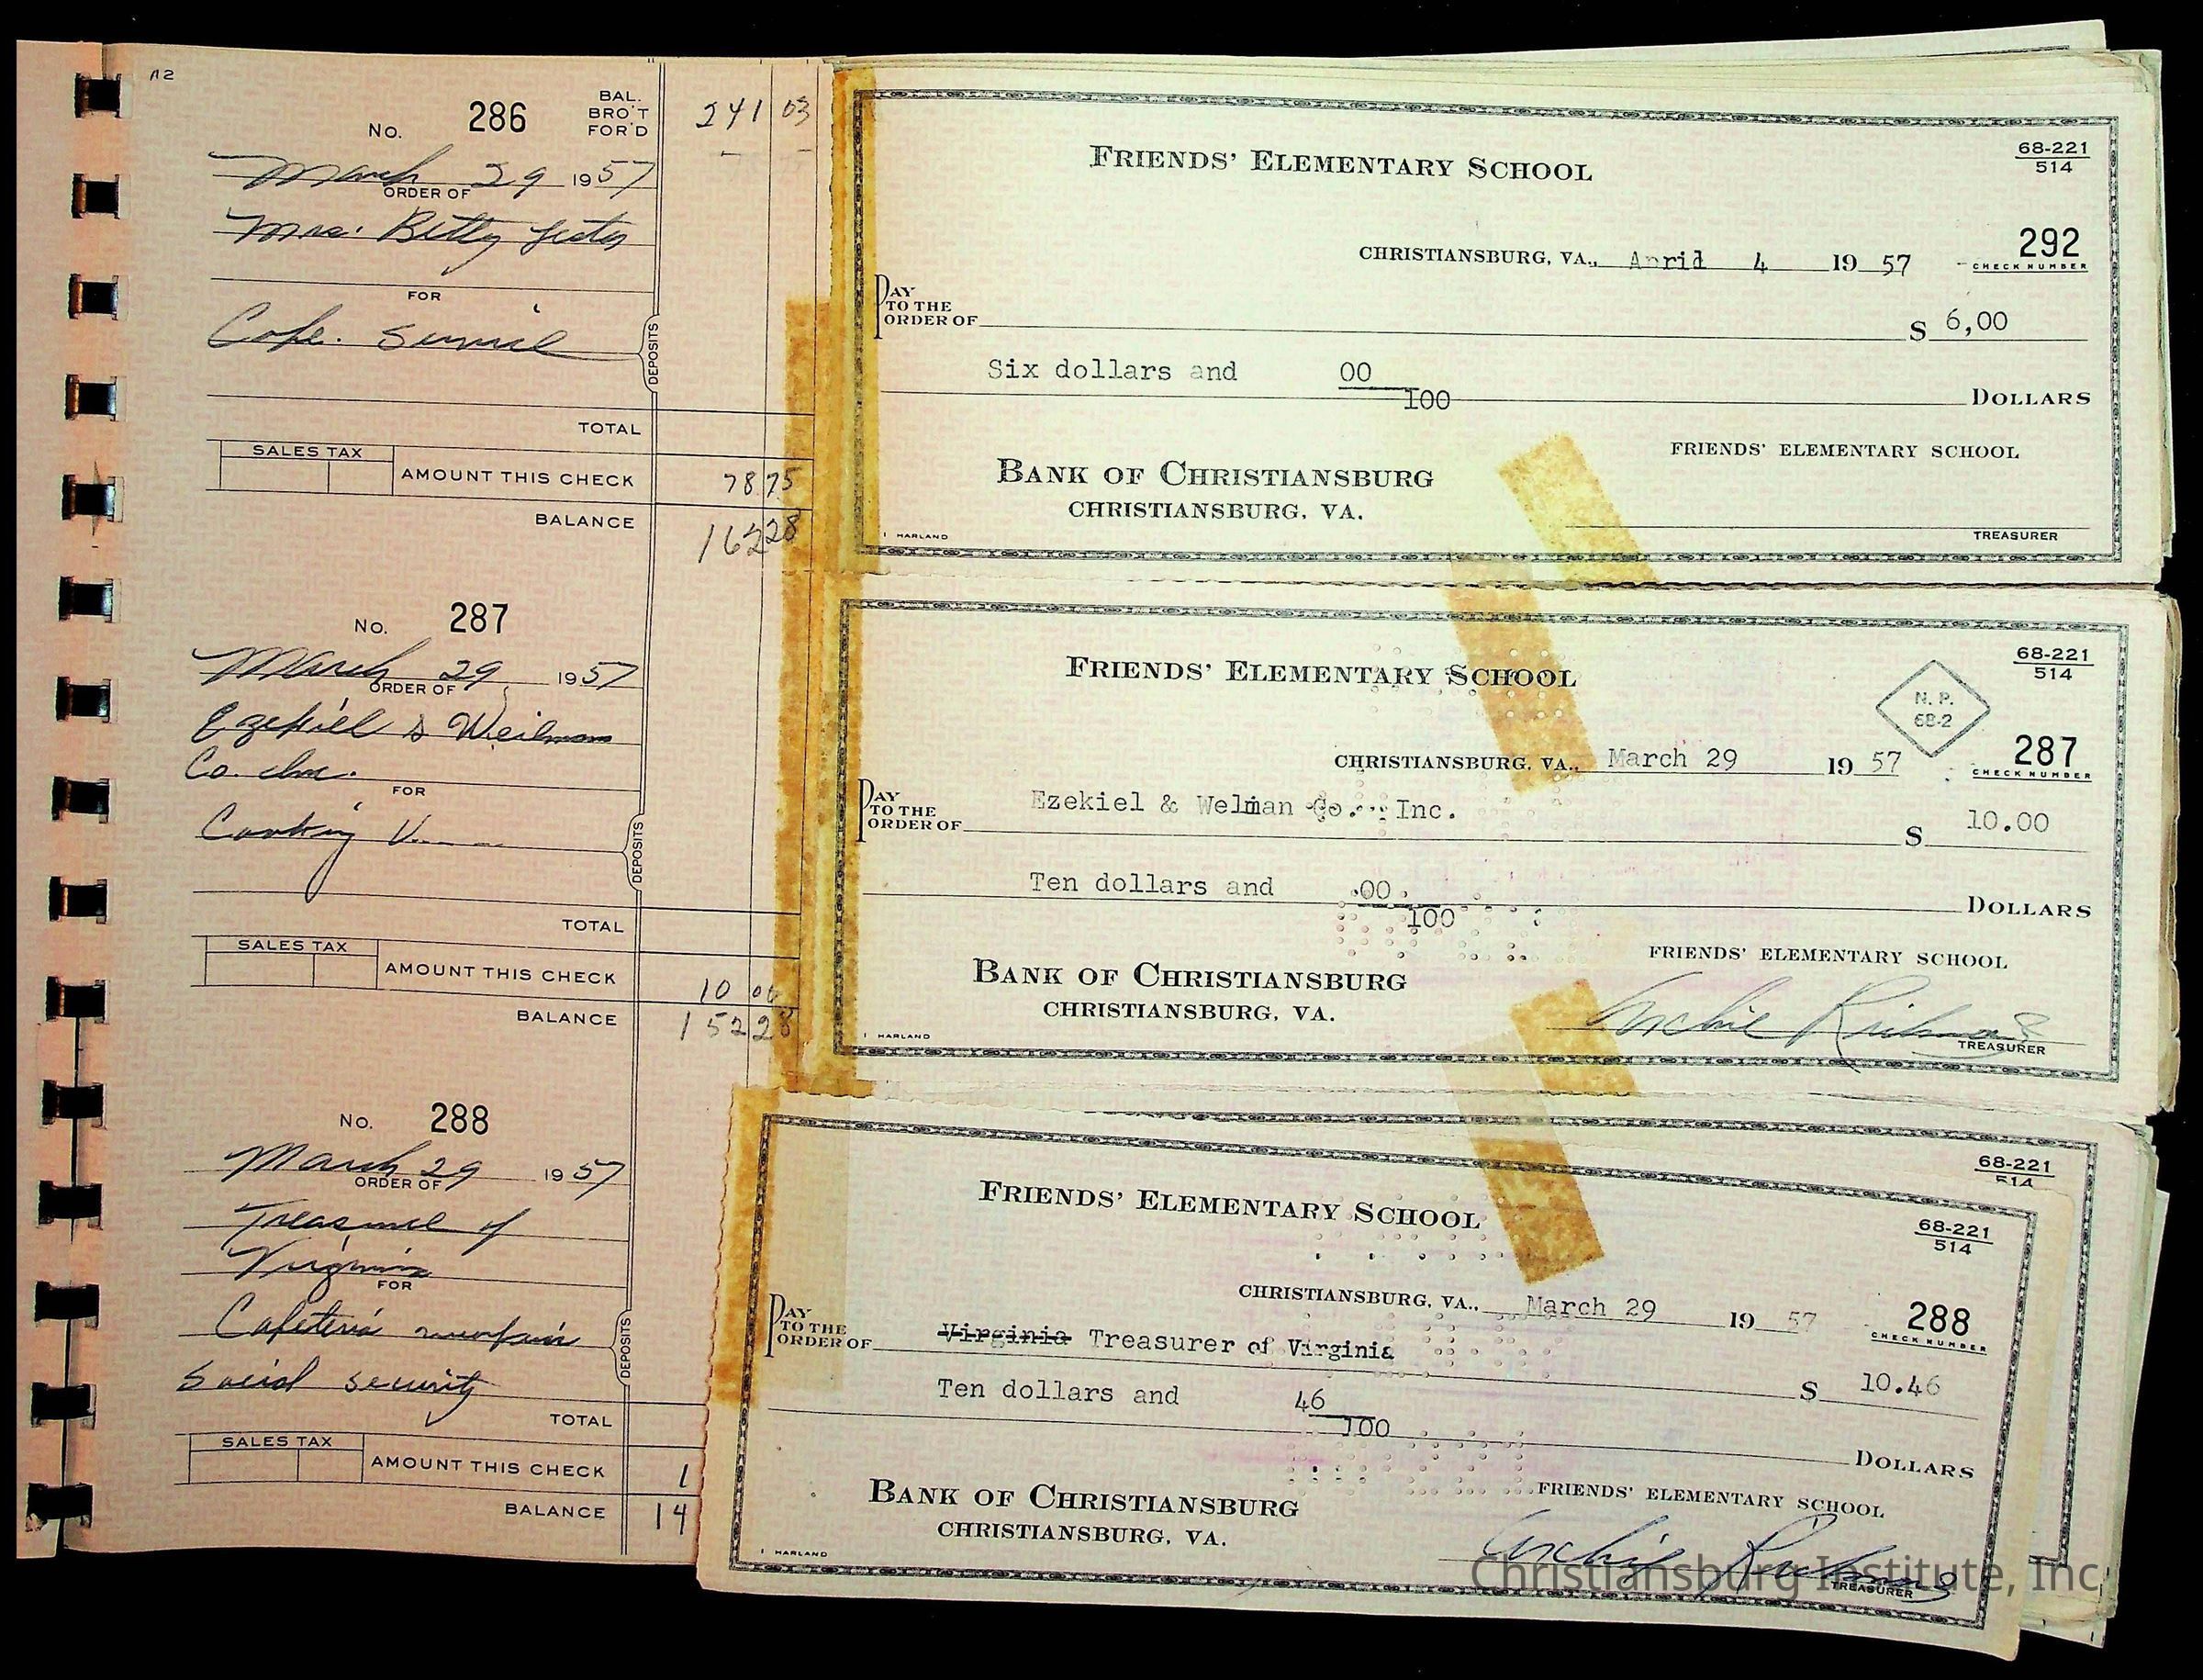 No. 286 BAL. BRO'T FOR'D 241 03
March 29 1957
ORDER OF
Mrs. Betty
FOR
DEPOSITS
TOTAL
SALES TAX
AMOUNT THIS CHECK 78 75
BALANCE 162 28
No. 287
March 29 1957
ORDER OF
Ezekiel & Weilman
Co. Inc.
FOR
DEPOSITS
TOTAL
SALES TAX
AMOUNT THIS CHECK 10 00
BALANCE 152 28
No. 288
March 29 1957
ORDER OF
Treasurer of
Virginia
FOR
Cafeteria
Social security
DEPOSITS
TOTAL
SALES TAX
AMOUNT THIS CHECK 1
BALANCE 14
FRIENDS' ELEMENTARY SCHOOL
68-221
514
CHRISTIANSBURG, VA., April 4 19 57
292
CHECK NUMBER
PAY TO THE ORDER OF $ 6,00
Six dollars and 00/100 DOLLARS
FRIENDS' ELEMENTARY SCHOOL
BANK OF CHRISTIANSBURG
CHRISTIANSBURG, VA.
HARLAND
TREASURER
FRIENDS' ELEMENTARY SCHOOL
68-221
514
N. P.
68-2
CHRISTIANSBURG, VA., March 29 19 57
287
CHECK NUMBER
PAY TO THE ORDER OF Ezekiel & Welman Co. Inc. $ 10.00
Ten dollars and 00/100 DOLLARS
FRIENDS' ELEMENTARY SCHOOL
BANK OF CHRISTIANSBURG
CHRISTIANSBURG, VA.
Archie
HARLAND
TREASURER
68-221
514
FRIENDS' ELEMENTARY SCHOOL
68-221
514
CHRISTIANSBURG, VA., March 29 19 57
288
CHECK NUMBER
PAY TO THE ORDER OF Virginia Treasurer of Virginia $ 10.46
Ten dollars and 46/100 DOLLARS
FRIENDS' ELEMENTARY SCHOOL
BANK OF CHRISTIANSBURG
CHRISTIANSBURG, VA.
Archie
HARLAND
TREASURER
Christiansburg Institute, Inc.